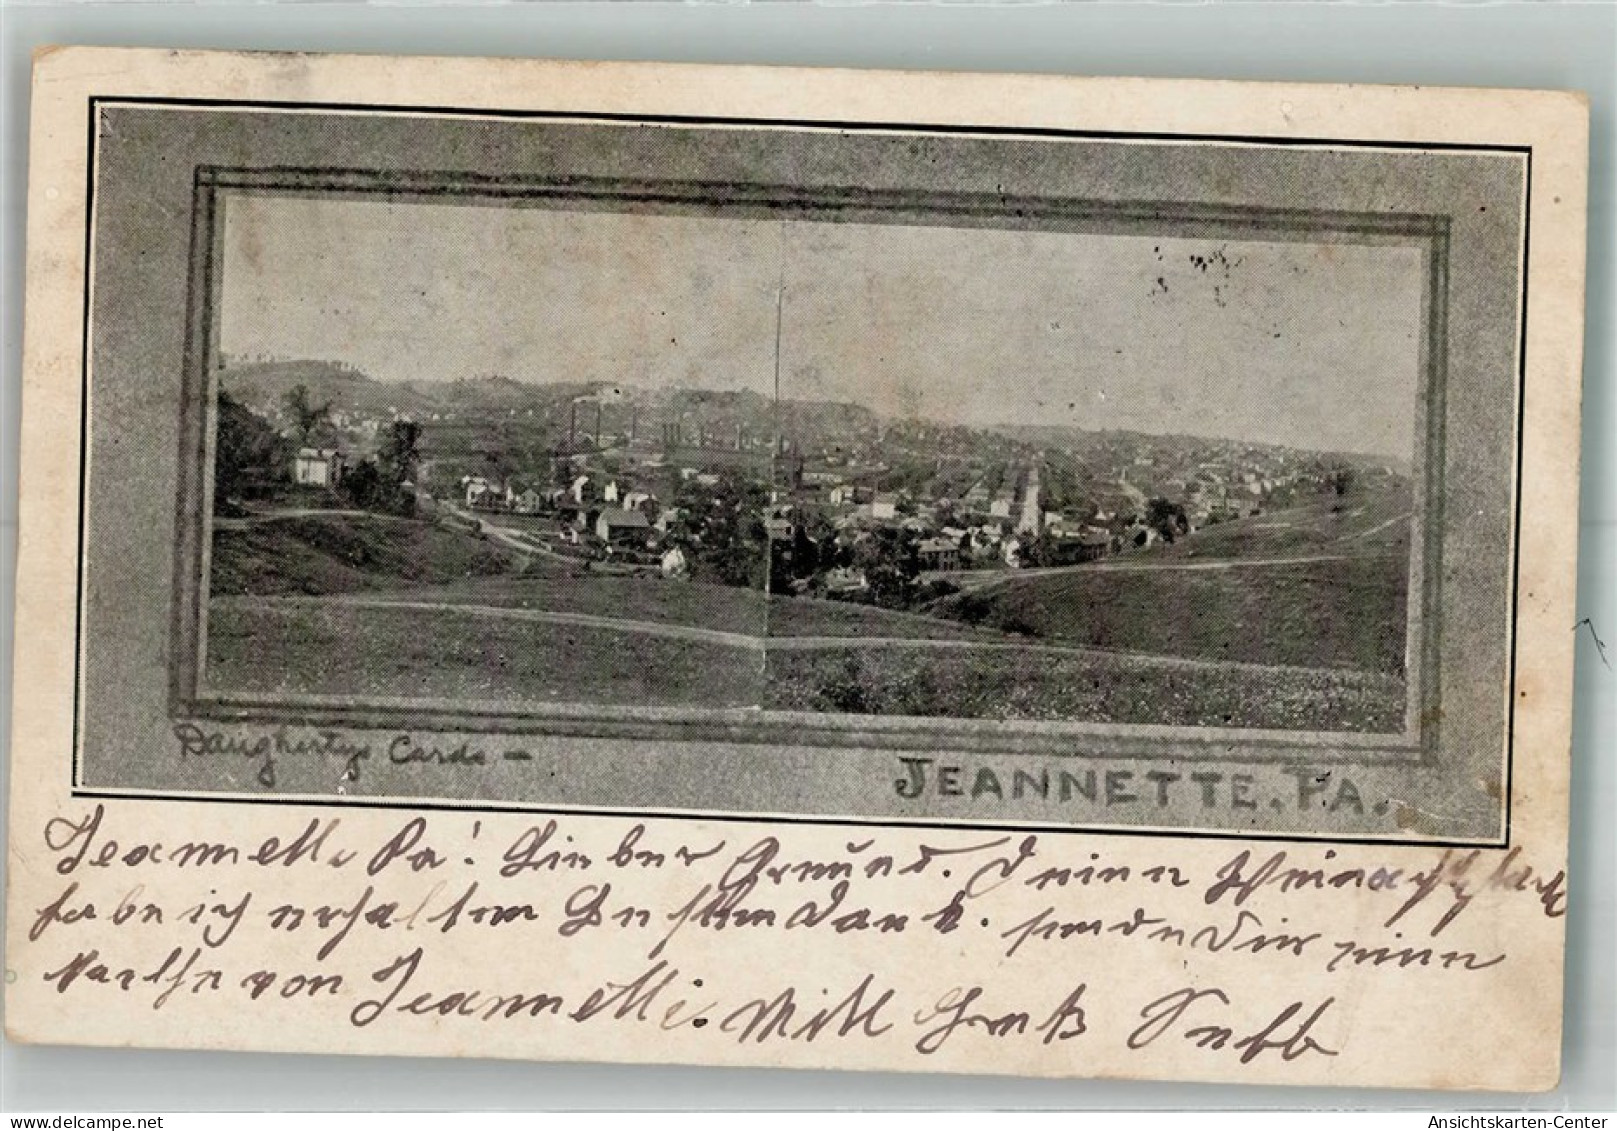 Daughertys Cards –
JEANNETTE, PA.
Jeannette Pa! Lieber Freund. Deine
habe ich erhalten Besten Dank. sende Dir eine
Karthe von Jeannette. Mitt Gruß
Ansichtskarten-Center